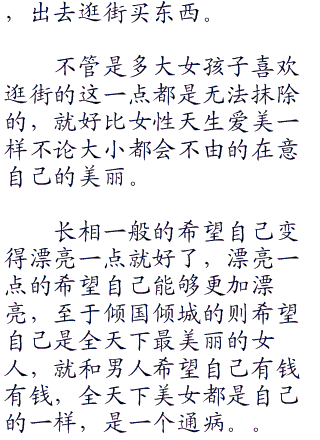 ，出去逛街买东西。
不管是多大女孩子喜欢
逛街的这一点都是无法抹除
的，就好比女性天生爱美一
样不论大小都会不由的在意
自己的美丽。
长相一般的希望自己变
得漂亮一点就好了，漂亮一
点的希望自己能够更加漂
亮，至于倾国倾城的则希望
自己是全天下最美丽的女
人，就和男人希望自己有钱
有钱，全天下美女都是自己
的一样，是一个通病。。